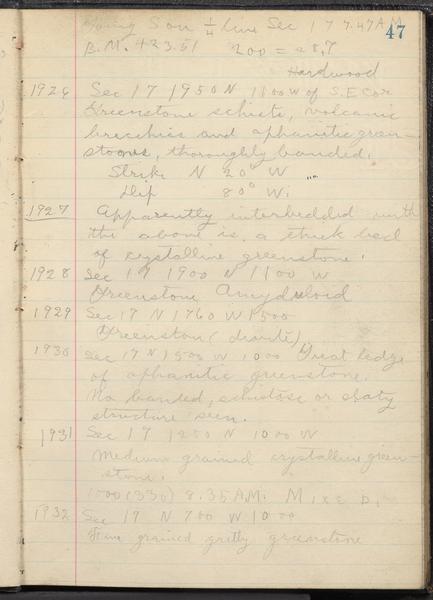 Going S on 1/4 line Sec 17 7.47 A.M.
47
B.M. 423.51 200 = 28.7
Hardwood
1926 Sec 17 1950 N 1100 W of S.E Cor
Greenstone schists, volcanic
breccias and aphanitic green-
stones, thoroughly banded.
Strike N 20° W
Dip 80° W.
1927 Apparently interbedded with
the above is a thick bed
of crystalline greenstone.
1928 Sec 17 1900 N 1100 W
Greenstone Amygduloid
1929 Sec 17 N 1760 W 1500
Greenston (diorite)
1930 Sec 17 N 1500 W 1000 Great ledge
of aphanitic greenstone.
No banded, schistose or slaty
structure seen.
1931 Sec 17 1250 N 1000 W
Medium grained crystalline green-
stone.
1000 (330) 8.35 A.M. MIXED.
1932 Sec 17 N 700 W 1000
Fine grained gritty greenstone